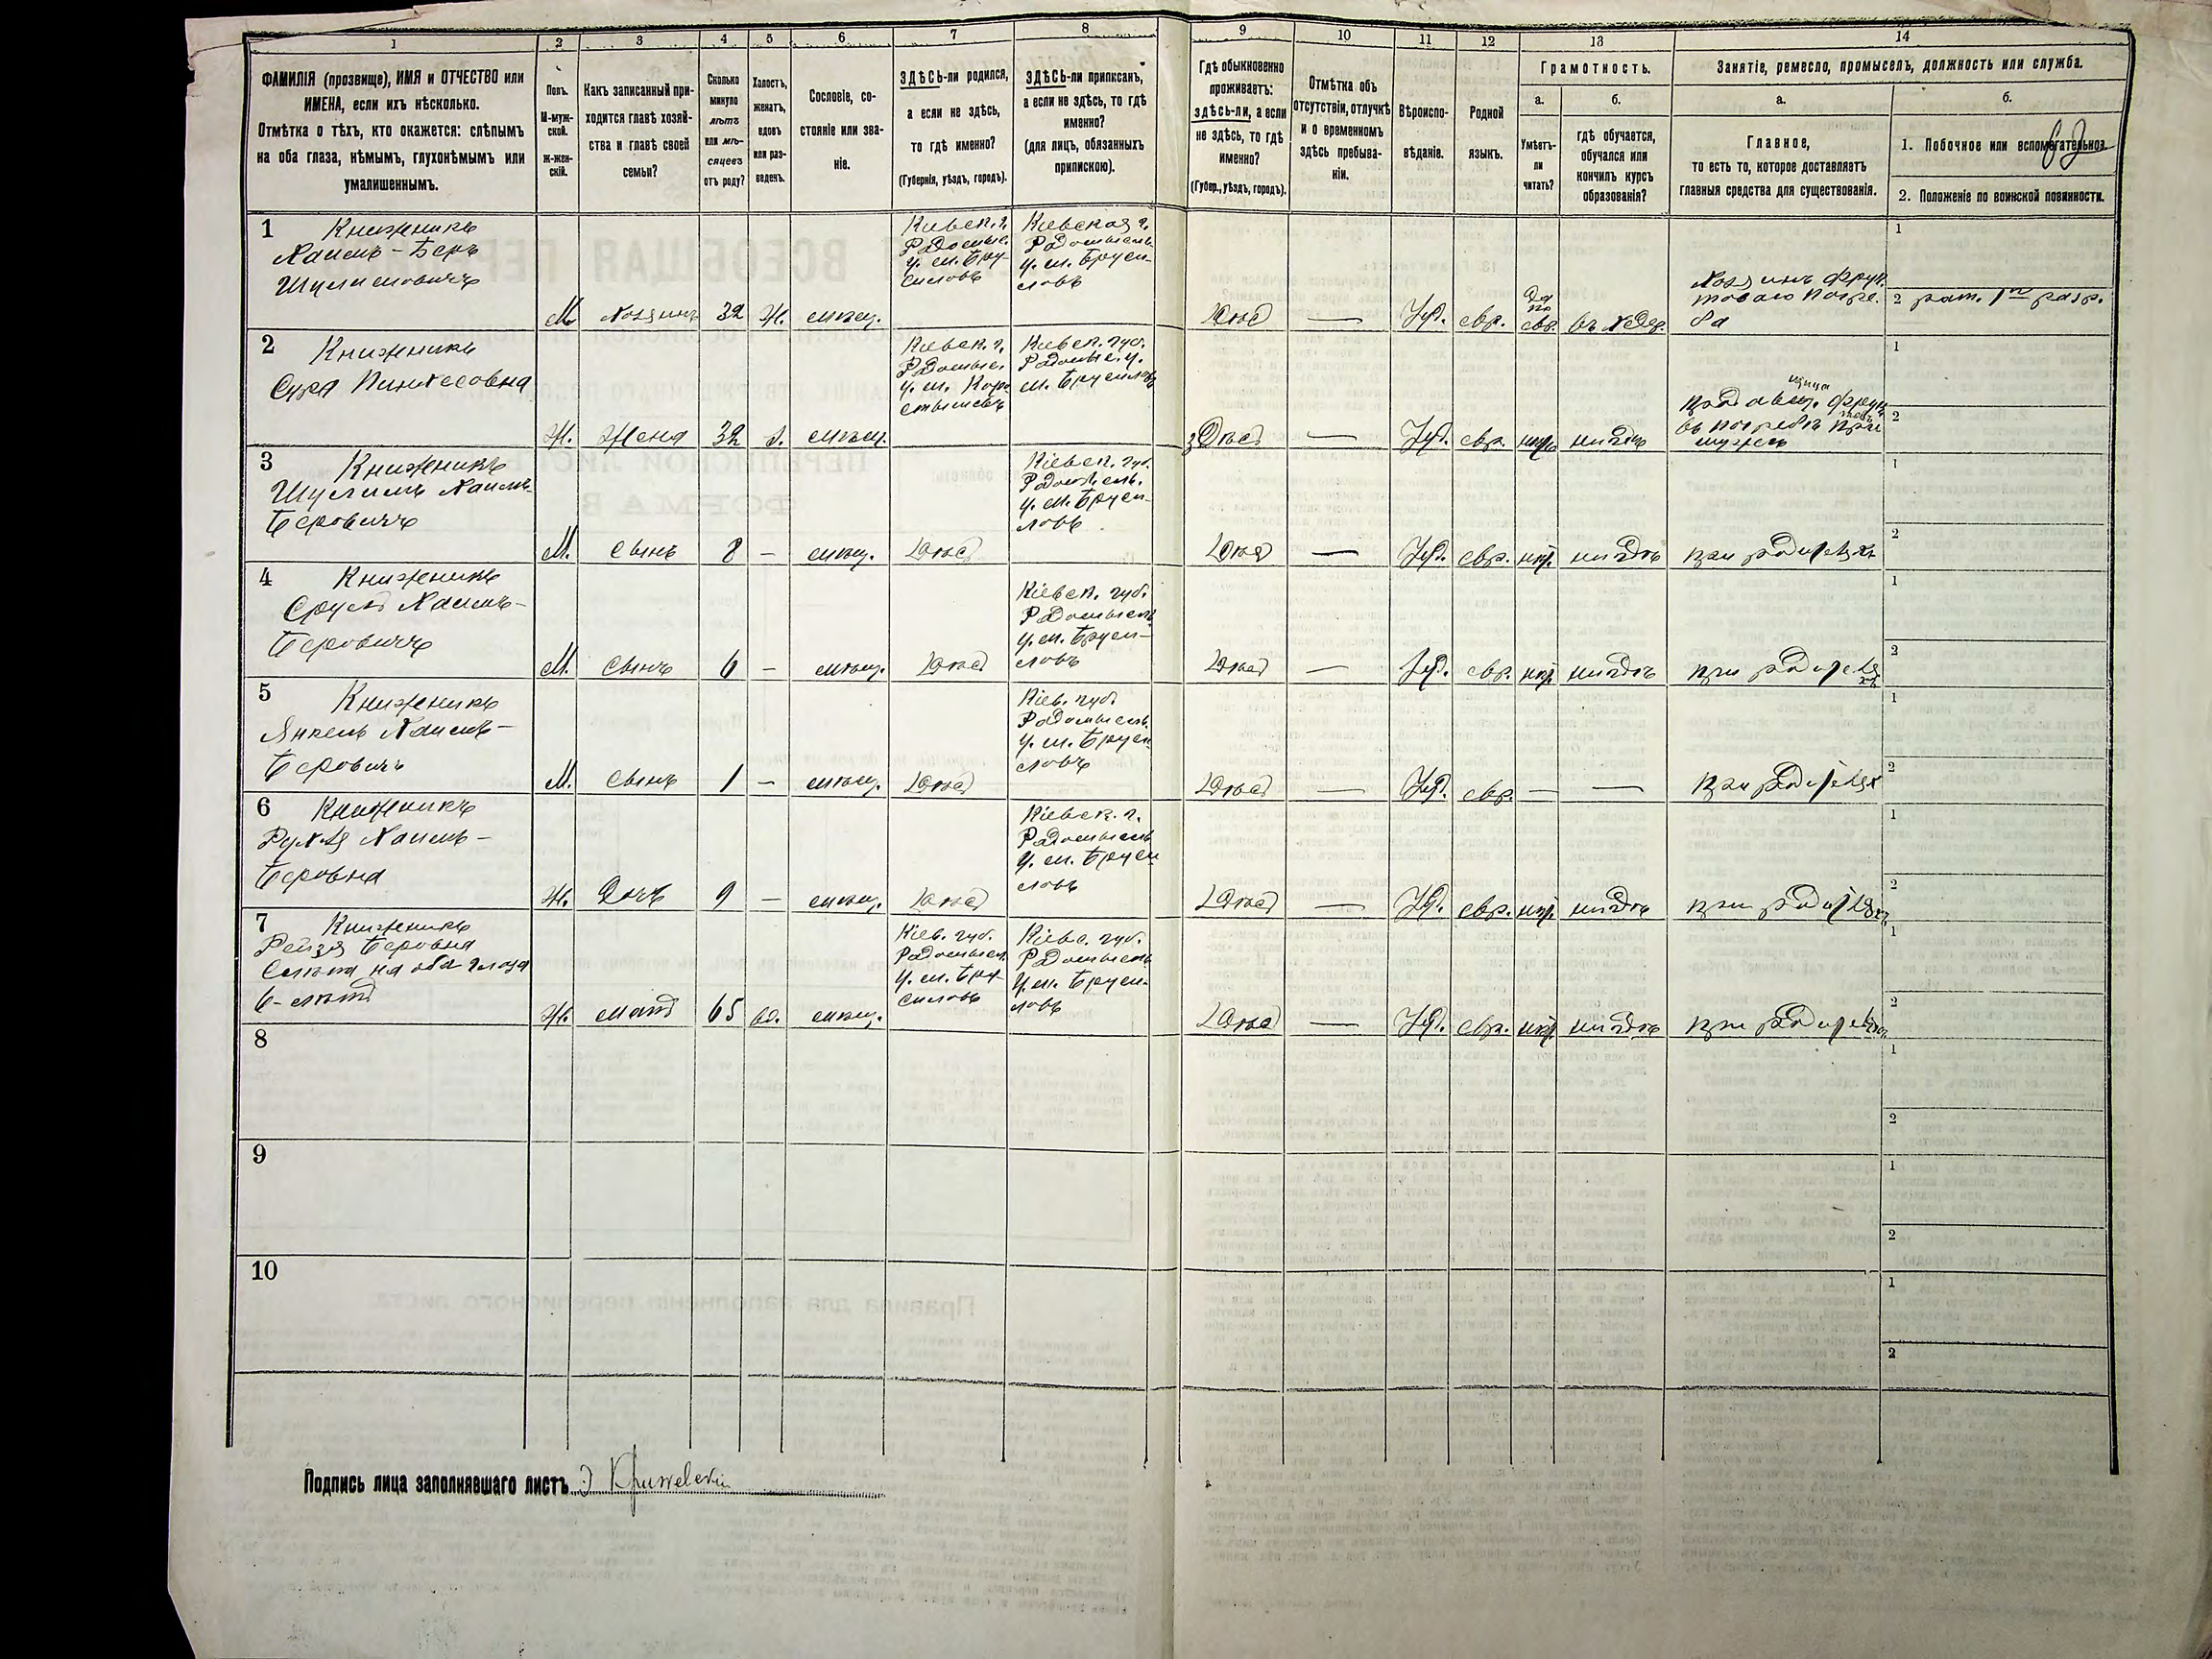 1 2 3 4 5 6 7 8 9 10 11 12 13 14
ФАМИЛІЯ (прозвище), ИМЯ и ОТЧЕСТВО или
ИМЕНА, если ихъ нѣсколько.
Отмѣтка о тѣхъ, кто окажется: слѣпымъ
на оба глаза, нѣмымъ, глухонѣмымъ или
умалишеннымъ.
Полъ.
М-муж-
ской.
Ж-жен-
скій.
Какъ записанный при-
ходится главѣ хозяй-
ства и главѣ своей
семьи?
Сколько
минуло
лѣтъ
или мѣ-
сяцевъ
отъ роду?
Холостъ,
женатъ,
вдовъ
или раз-
веденъ.
Сословіе, со-
стояніе или зва-
ніе.
ЗДѢСЬ-ли родился,
а если не здѣсь,
то гдѣ именно?
(Губернія, уѣздъ, городъ).
ЗДѢСЬ-ли приписанъ,
а если не здѣсь, то гдѣ
именно?
(для лицъ, обязанныхъ
припискою).
Гдѣ обыкновенно
проживаетъ:
здѣсь-ли, а если
не здѣсь, то гдѣ
именно?
(Губер., уѣздъ, городъ).
Отмѣтка объ
отсутствіи, отлучкѣ
и о временномъ
здѣсь пребыва-
ніи.
Вѣроиспо-
вѣданіе.
Родной
языкъ.
Грамотность.
а.
Умѣетъ-
ли
читать?
б.
гдѣ обучается,
обучался или
кончилъ курсъ
образованія?
Занятіе, ремесло, промыселъ, должность или служба.
а.
Главное,
то есть то, которое доставляетъ
главныя средства для существованія.
б.
1. Побочное или вспомогательное.
2. Положеніе по воинской повинности.
1 Книжникъ
Хаимъ-Беръ
Шулимовичъ
М. Хозяинъ 32 Ж. мѣщ.
Кіевск. г.
Радомыс.
у. м. Бру-
силовъ
Кіевская г.
Радомысль.
у. м. Бруси-
ловъ
Здѣсь — Іуд. евр.
Да
по
евр. въ хедер.
Хозяинъ фрук.
товаго погре.
ба
1
2 рат. 1го разр.
2 Книжникъ
Сура Пинхесовна
Ж. Жена 32 З. мѣщ.
Кіевск. г.
Радомыс.
у. м. Коро
стышевъ
Кіевск. губ.
Радомыс. у.
м. Брусиловъ
Здѣсь — Іуд. евр. нѣтъ нигдѣ
щица
продавщ. фрук
товъ
въ погребѣ при
мужѣ
1
2
3 Книжникъ
Шулимъ Хаимъ-
Беровичъ
М. Сынъ 8 — мѣщ. Здѣсь
Кіевск. губ.
Радомысль.
у. м. Бруси-
ловъ
Здѣсь — Іуд. евр. нѣт. нигдѣ при родителяхъ
1
2
4 Книжникъ
Сруль Хаимъ-
Беровичъ
М. Сынъ 6 — мѣщ. Здѣсь
Кіевск. губ.
Радомысль
у. м. Бруси-
ловъ
Здѣсь — Іуд. евр. нѣт. нигдѣ при родителя
хъ
1
2
5 Книжникъ
Янкель Хаимъ-
Беровичъ
М. Сынъ 1 — мѣщ. Здѣсь
Кіев. губ.
Радомысль
у. м. Бруси
ловъ
Здѣсь — Іуд. евр. — — при родителях
1
2
6 Книжникъ
Рухля Хаимъ-
Беровна
Ж. Дочь 9 — мѣщ. Здѣсь
Кіевск. г.
Радомысль
у. м. Бруси
ловъ
Здѣсь — Іуд. евр. нѣт. нигдѣ при родителяхъ
1
2
7 Книжникъ
Рейзя Беровна
Слѣпа на оба глаза
6-лѣтъ
Ж. мать 65 вд. мѣщ.
Кіев. губ.
Радомысл.
у. м. Бру-
силовъ
Кіевс. губ.
Радомысль
у. м. Бруси-
ловъ
Здѣсь — Іуд. евр. нѣт. нигдѣ
1
2
8
1
2
9
1
2
10
1
2
Подпись лица заполнявшаго листъ